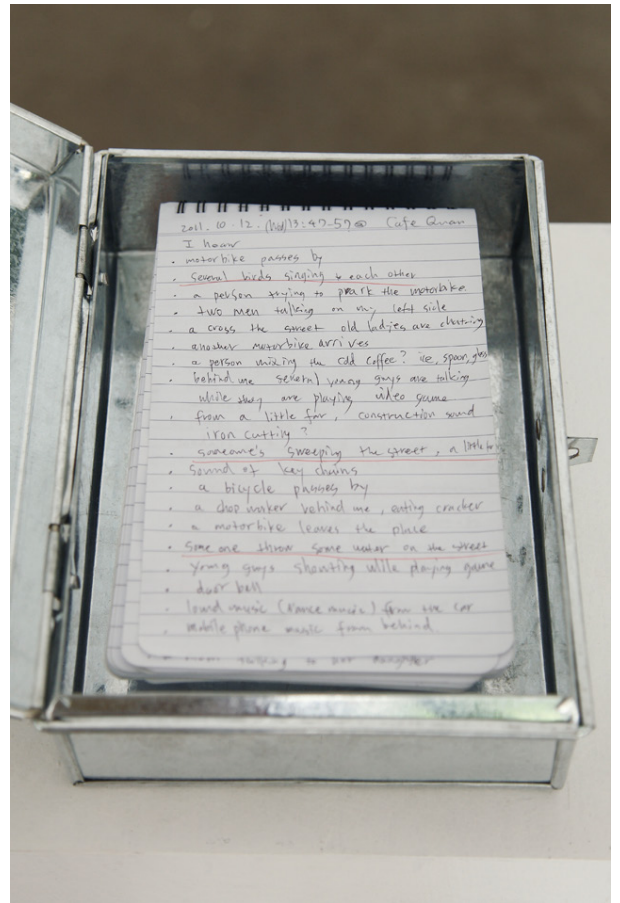 2011. 10. 12. (Wed) 13:47-57@ Cafe Quan
I hear
· motorbike passes by
· Several birds singing to each other
· a person trying to park the motorbike
· two men talking on my left side
· a cross the street old ladies are chatting
· another motorbike arrives
· a person mixing the cold coffee? ie, spoon, glass
· behind me several young guys are talking
while they are playing video game
· from a little far, construction sound
iron cutting?
· someone's sweeping the street, a little
· sound of key chains
· a bicycle passes by
· a behind me, eating cracker
· a motorbike leaves the place
· Some one throw some water on the street
· young guys shouting while playing game
· door bell
· loud music (dance music) from the car
· mobile phone music from behind
talking to her daughter